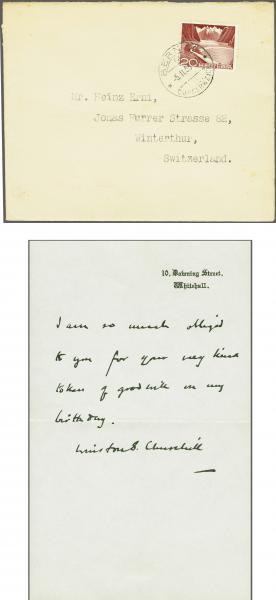 BERN
20
HELVETIA
Mr. Heinz Erni,
Jonas Furrer Strasse 82,
Winterthur,
Switzerland.
10, Downing Street,
Whitehall.
I am so much obliged
to you for your very kind
token of goodwill on my
birthday.
Winston S. Churchill